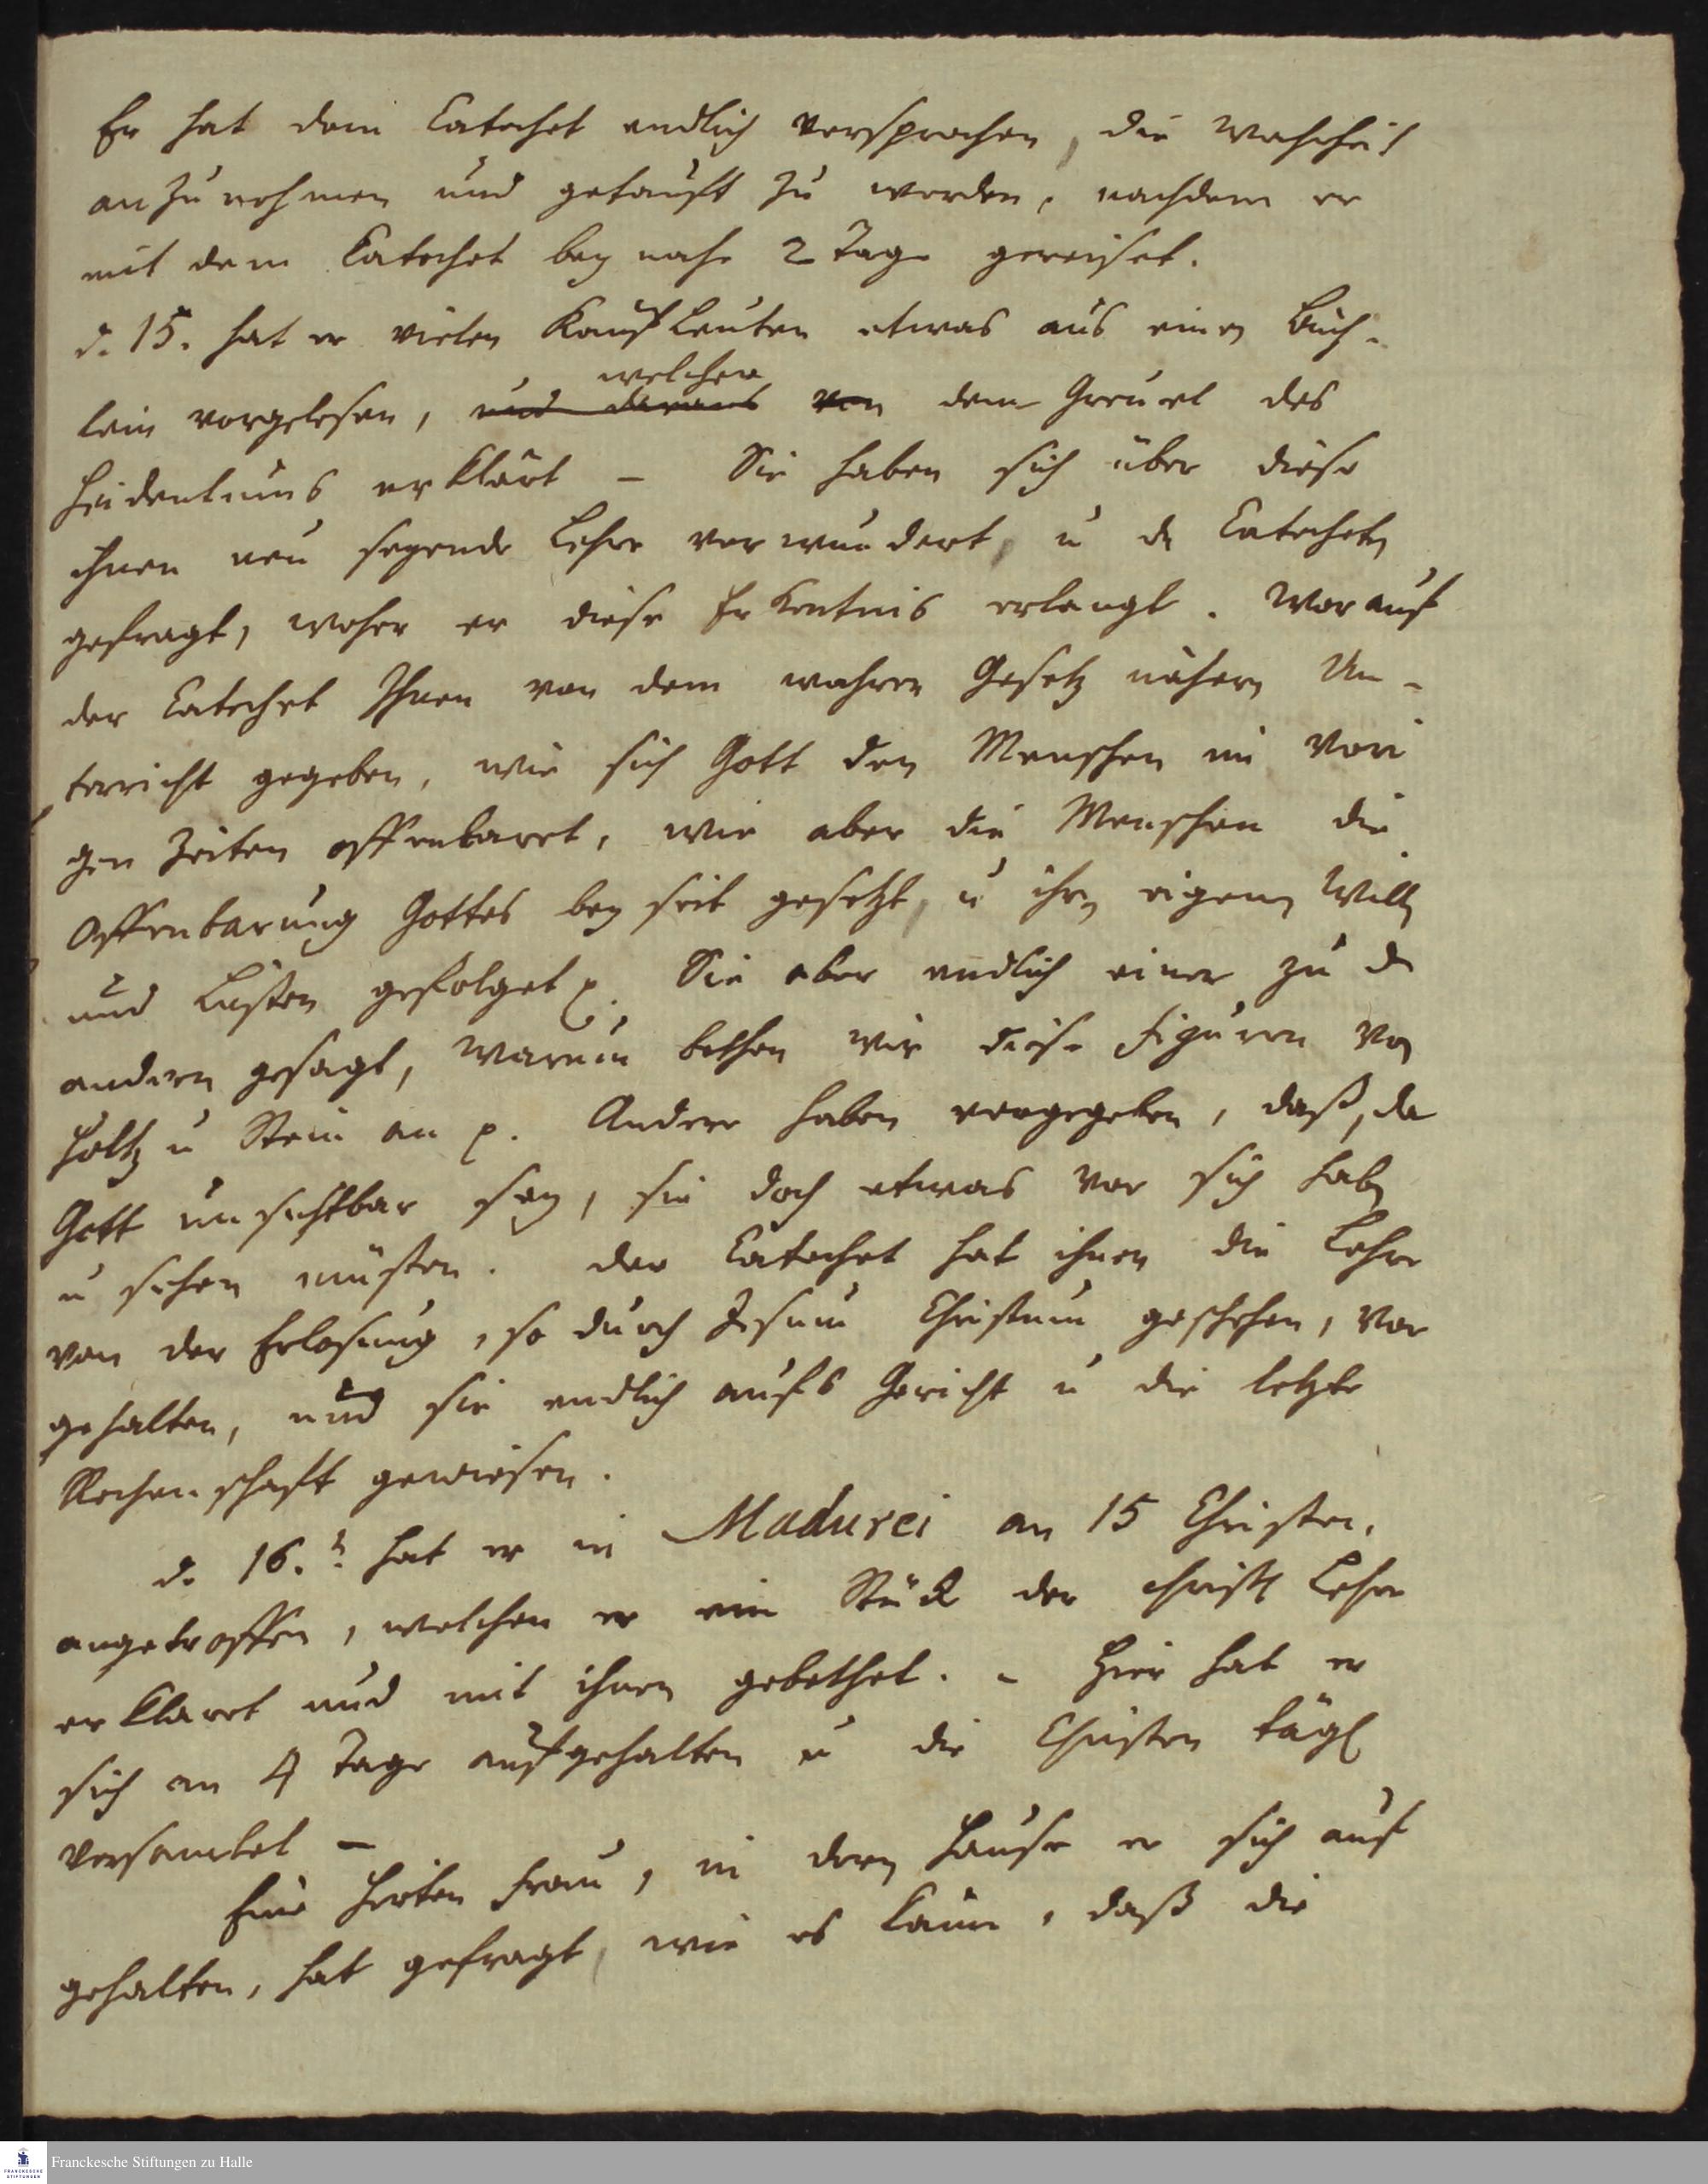 Er hat dem Catechet endlich versprochen, die Wahrheit
anzunehmen und getauft zu werden, nachdem er
mit dem Catechet bey nahe 2 Tage gereiset.
d. 15. hat er vielen Kaufleuten etwas aus einen Büch-
welcher
lein vorgelesen, und daraus von dem Greuel des
Heidentums erklärt – Sie haben sich über diese
ihnen neu seyende Lehre verwundert, u de Catecheten
gefragt, woher er diese Erkentnis erlangt. Worauf
der Catechet Ihnen von dem wahren Gesetz nähern Un-
terricht gegeben, wie sich Gott den Menschen in vori
gen Zeiten offenbaret, wie aber die Menschen die
Offenbarung Gottes bey seit gesetzt, u ihren eigenen Willen
und Lüsten gefolget p. Sie aber endlich einer zu de
andern gesagt, warum bethen wir diese Figuren von
Holtz u Stein an p. Andere haben vorgegeben, daß, da
Gott unsichtbar sey, sie doch etwas vor sich haben
u sehen müsten. der Catechet hat ihnen die Lehre
von der Erlosung, so durch Jesum Christum geschehen, vor
gehalten, und sie endlich aufs Gericht u die letzte
Rechenschaft gewiesen.
d. 16. hat er in Madurei an 15 Christen,
angetroffen, welchen er ein Stück der christl Lehre
erklaret und mit ihnen gebethet. – Hier hat er
sich an 4 Tage aufgehalten u die Christen tägl
versamlet –
Eine Hirten Frau, in deren Hause er sich auf
gehalten, hat gefragt, wie es käme, daß die
Franckesche Stiftungen zu Halle
FRANCKESCHE
STIFTUNGEN